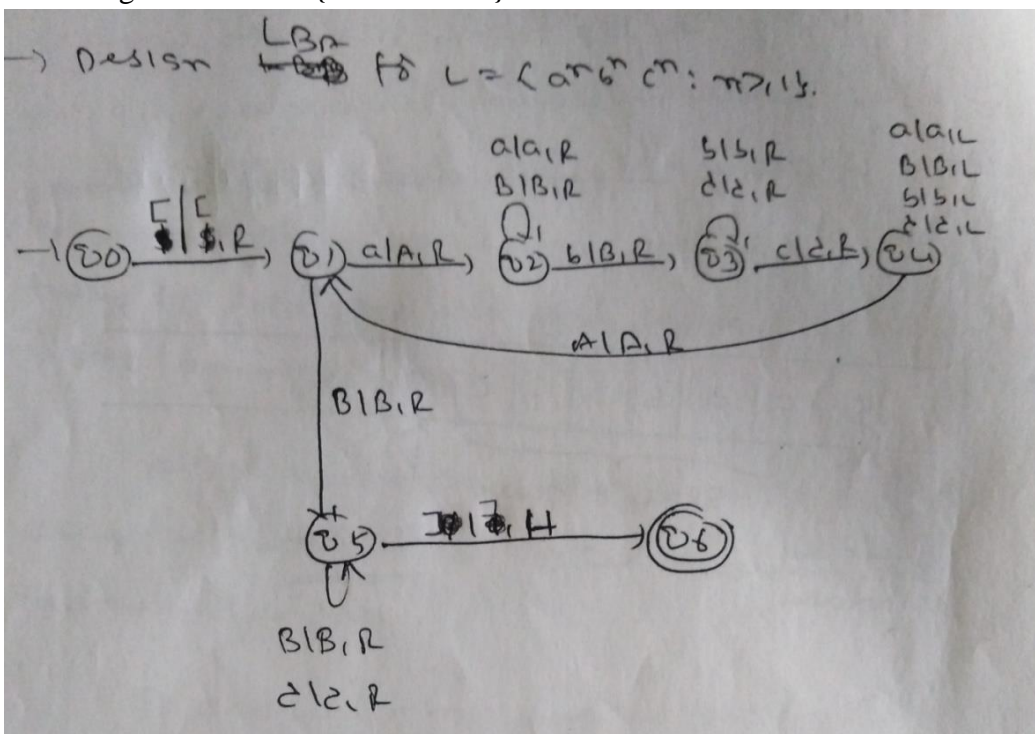 → Design LBA for L = {aⁿbⁿcⁿ : n≥1}.
a/a,R
B/B,R
b/b,R
č/č,R
a/a,L
B/B,L
b/b,L
č/č,L
[/[,R
q0
q1
a/A,R
q2
b/B,R
q3
c/č,R
q4
A/A,R
B/B,R
q5
]/],H
q6
B/B,R
č/č,R